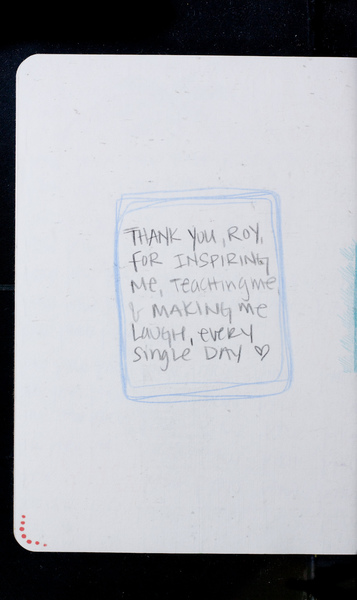 THANK YOU, ROY,
FOR INSPIRING
ME, TEACHING ME
& MAKING ME
LAUGH, EVERY
SINGLE DAY ♡